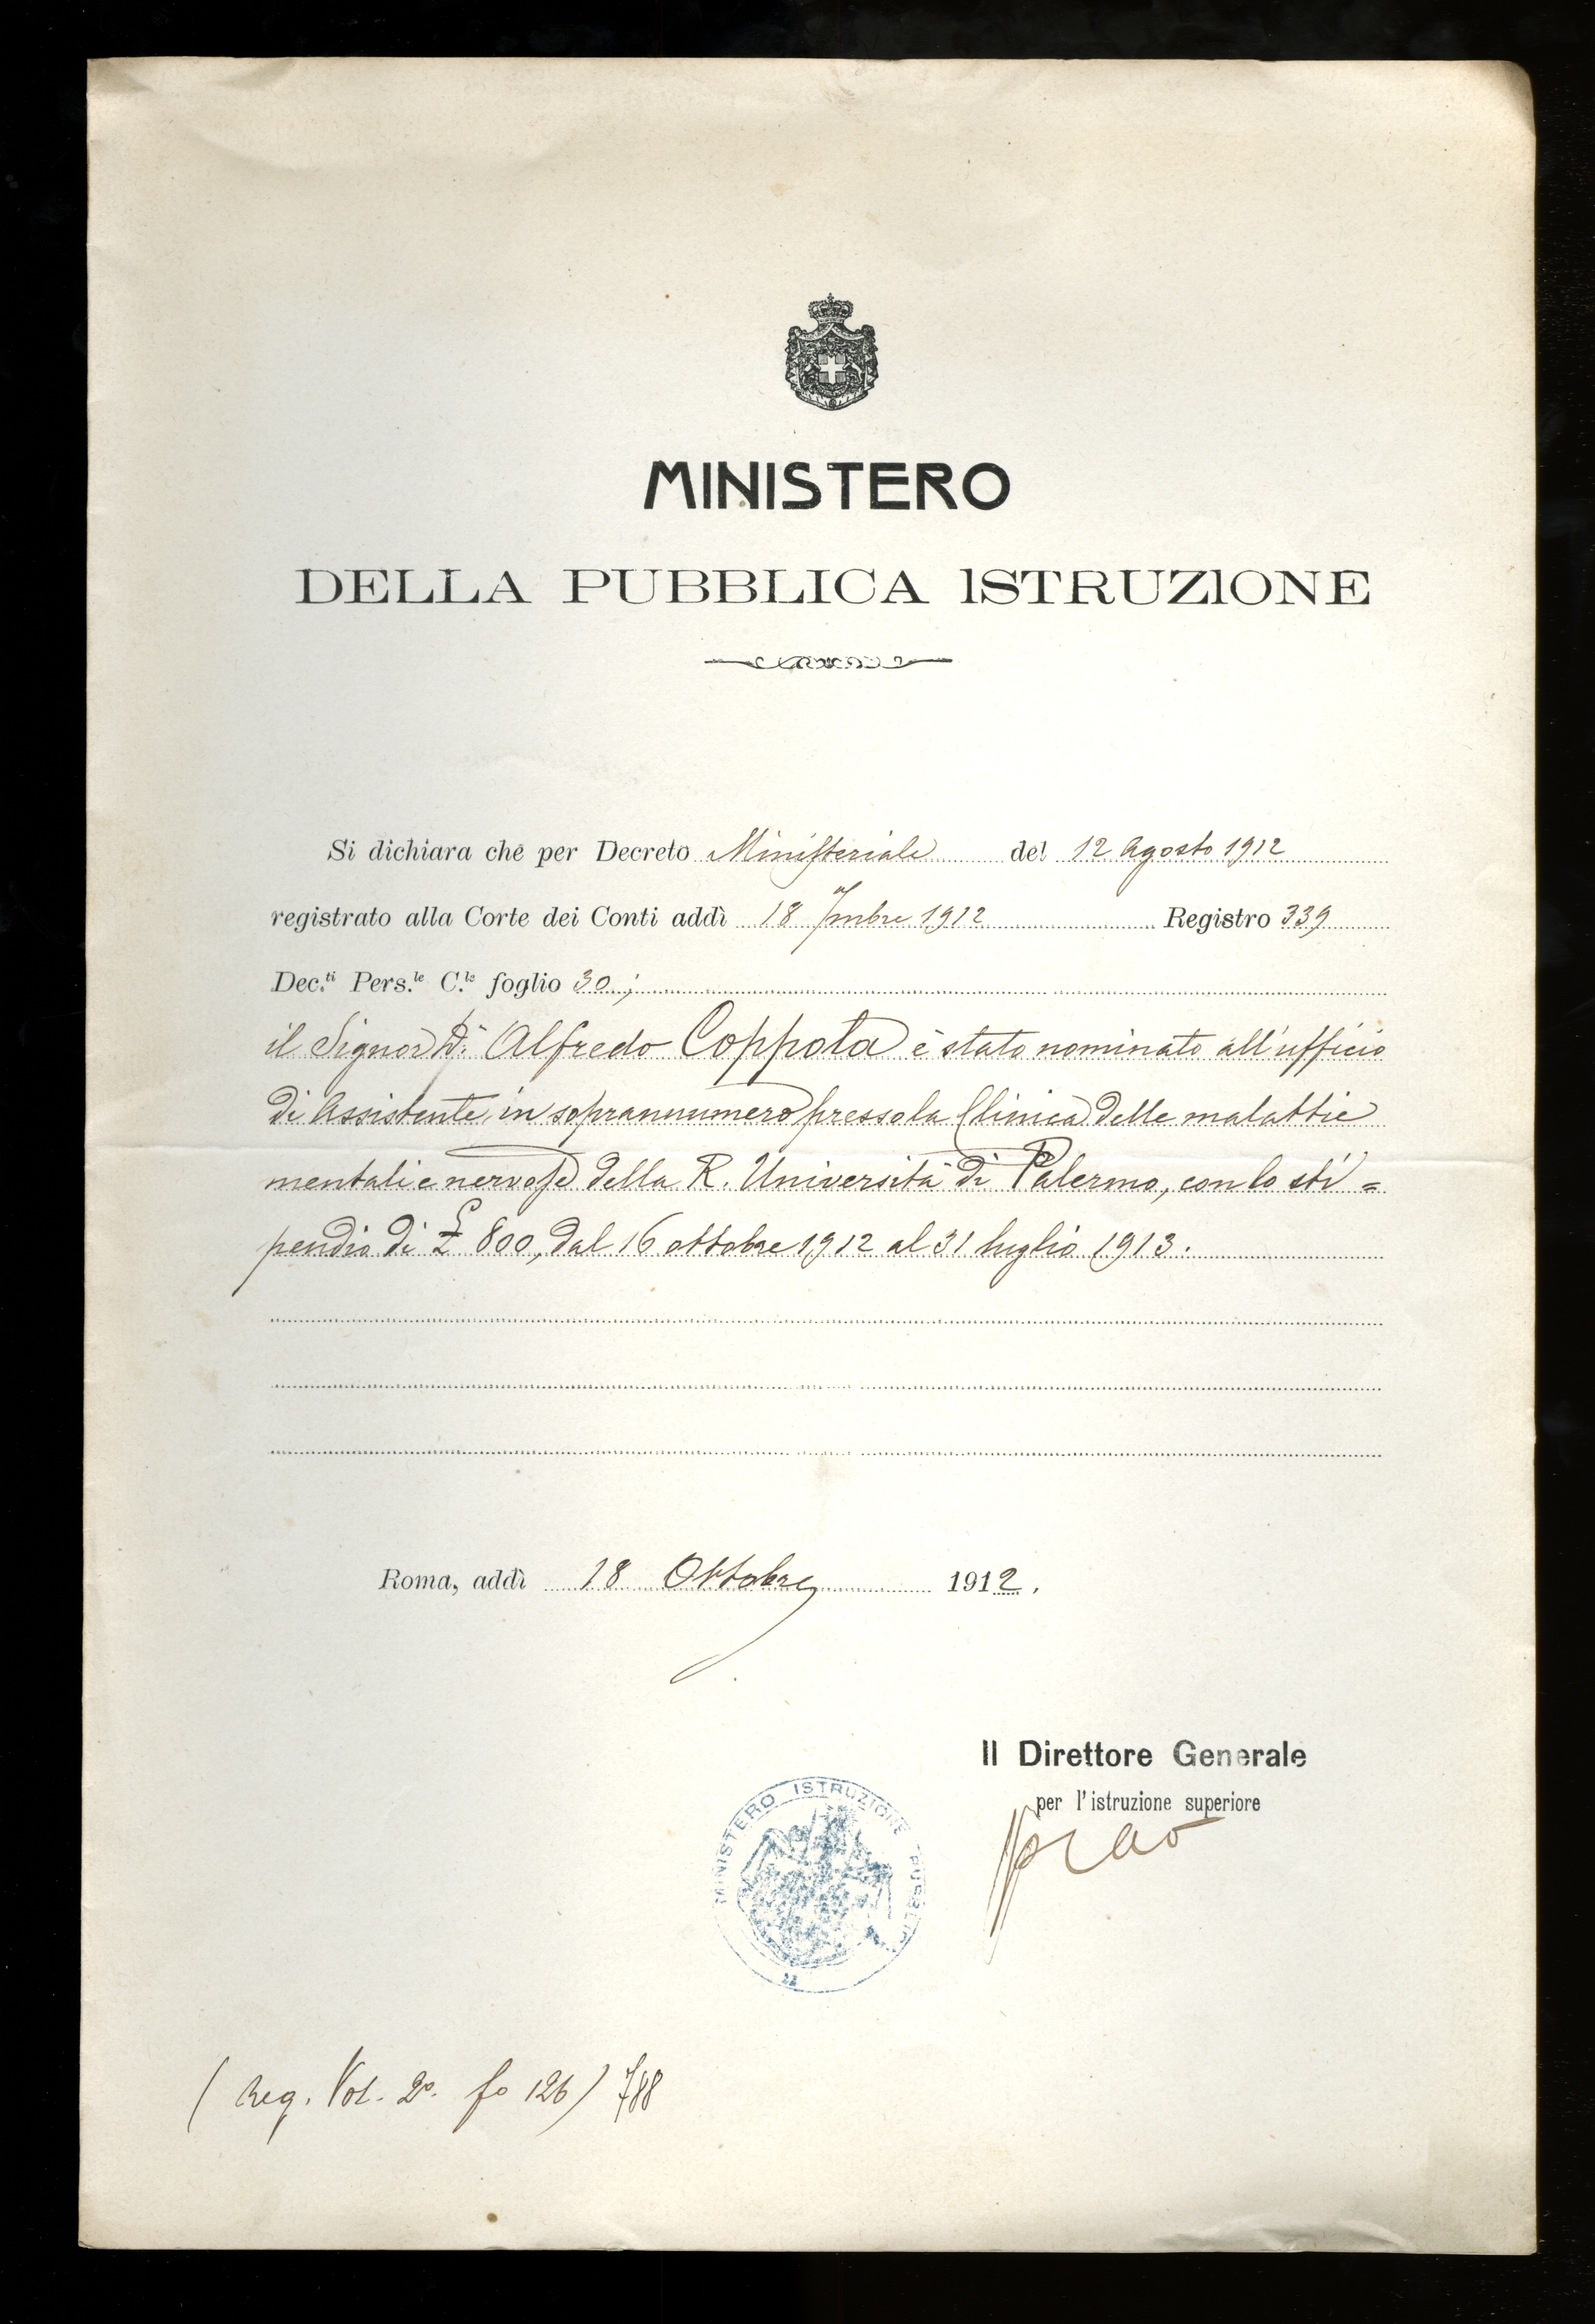 MINISTERO
DELLA PUBBLICA ISTRUZIONE
Si dichiara che per Decreto Ministeriale del 12 Agosto 1912
registrato alla Corte dei Conti addì 18 7mbre 1912 Registro 339
Dec.ti Pers.le C.le foglio 30;
il Signor Dr. Alfredo Coppola è stato nominato all'ufficio
di Assistente in soprannumero presso la Clinica delle malattie
mentali e nervose della R. Università di Palermo, con lo sti=
pendio di £ 800, dal 16 ottobre 1912 al 31 luglio 1913.
Roma, addì 18 Ottobre 1912.
Il Direttore Generale
per l'istruzione superiore
MINISTERO ISTRUZIONE PUBBLICA
(Reg. Vol. 2º. fo 126) 788